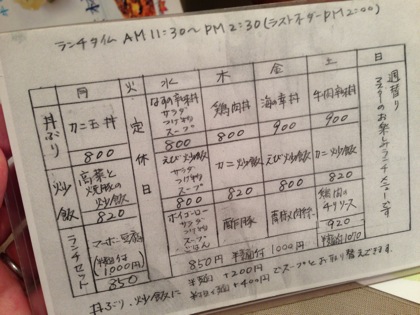 ランチタイム AM 11:30〜PM 2:30 (ラストオーダーPM 2:00)
月 火 水 木 金 土 日
丼ぶり
カニ玉丼
800
定休日
サラダ
つけもの
スープ
800
鶏肉丼
800
海の幸丼
900
牛肉
900
週替り
マスターのお楽しみランチメニューです
炒飯
高菜と
焼豚の
炒飯
820
えび炒飯
サラダ
つけもの
スープ
800
カニ炒飯
820
えび炒飯
800
カニ炒飯
820
ランチセット
マーボー豆腐
(半麺付
1000円)
850
ホイコーロー
サラダ
つけもの
スープ
ごはん
酢豚
鶏肉の
チリソース
920
850円 半麺付 1000円
半麺付1070
丼ぶり、炒飯に
半麺 +200円
+400円 でスープとお取り替えできます。